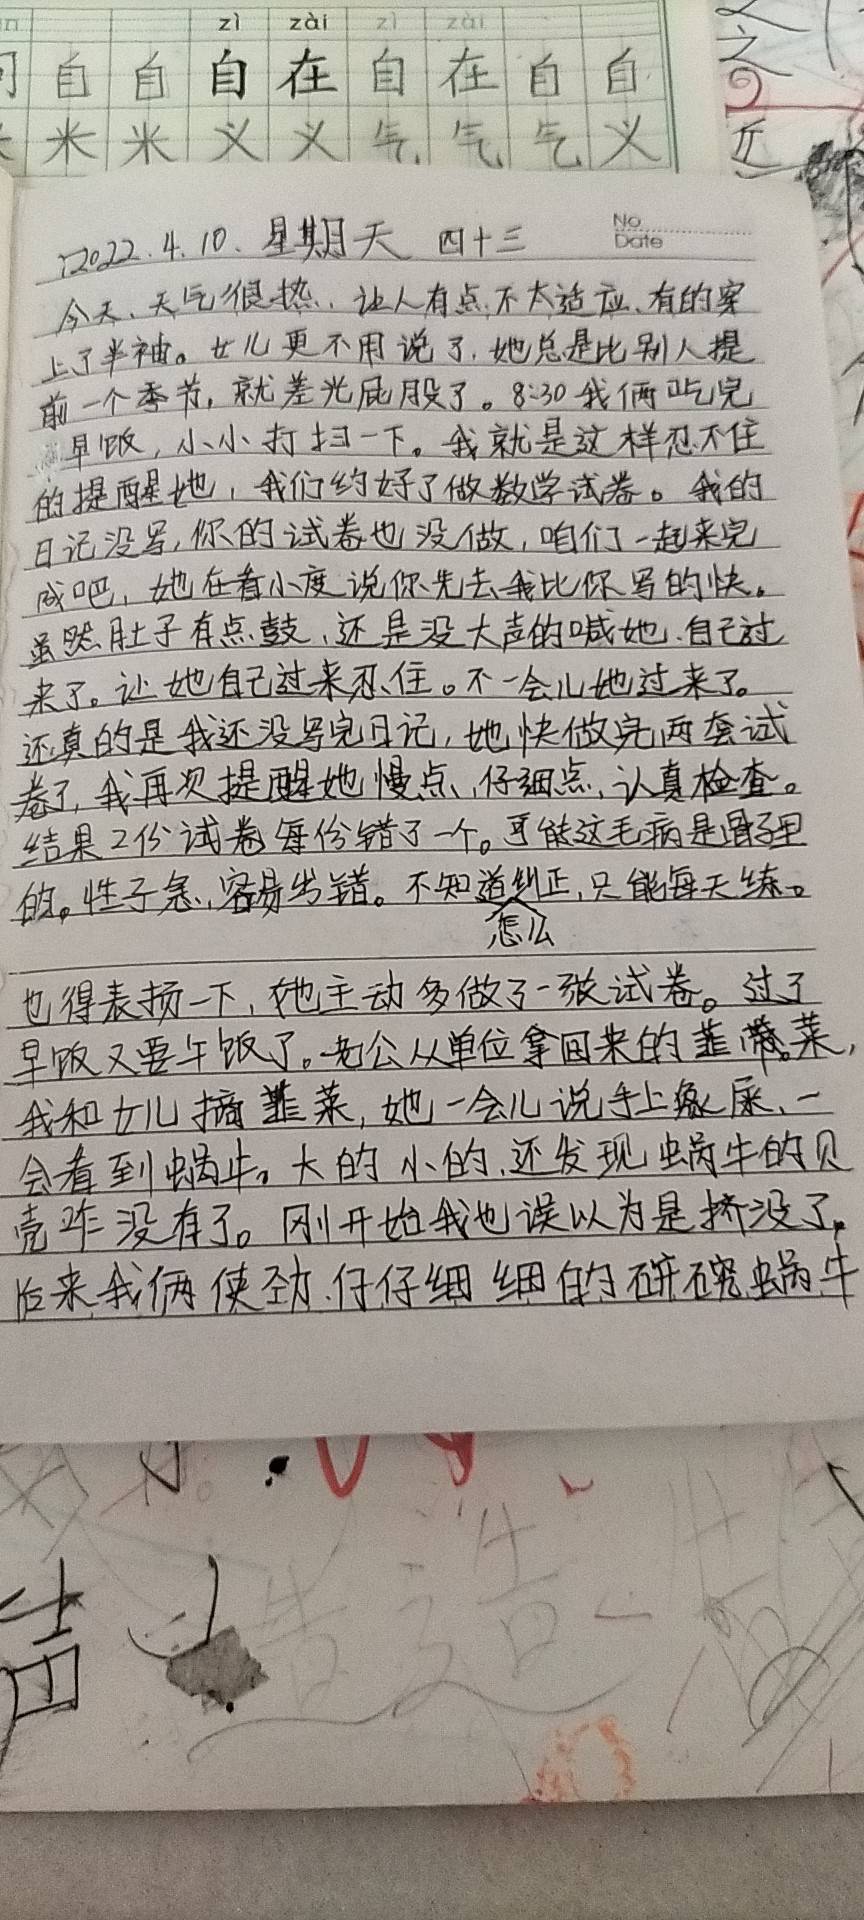 zì zài zì zài
自 自 自 在 自 在 自 自
米 米 义 义 气 气 气 义
2022.4.10. 星期天 四十三
No
Date
今天、天气很热、让人有点不太适应、有的穿
上了半袖。女儿更不用说了,她总是比别人提
前一个季节,就差光屁股了。8:30我俩吃完
早饭,小小打扫一下。我就是这样忍不住
的提醒她,我们约好了做数学试卷。我的
日记没写,你的试卷也没做,咱们一起来完
成吧,她在看小度说你先去我比你写的快。
虽然肚子有点鼓、还是没大声的喊她.自己过
来了。让她自己过来忍住。不一会儿她过来了。
还真的是我还没写完日记,她快做完两套试
卷了,我再次提醒她慢点、仔细点,认真检查。
结果2份试卷每份错了一个。可能这毛病是骨子里
的。性子急、容易出错。不知道怎么纠正,只能每天练。
也得表扬一下,她主动多做了一张试卷。过了
早饭又要午饭了。老公从单位拿回来的韭菜,
我和女儿摘韭菜,她一会儿说手上象尿、一
会看到蜗牛。大的小的,还发现蜗牛的贝
壳咋没有了。刚开始我也误以为是挤没了。
后来我俩使劲.仔仔细细的研究蜗牛